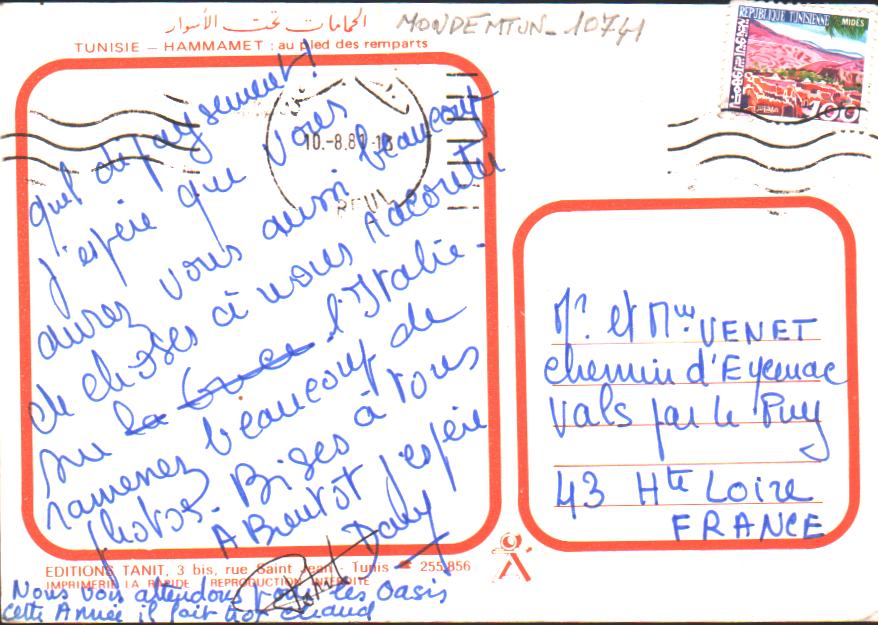 الحمامات تحت الأسوار
TUNISIE – HAMMAMET : au pied des remparts
MONDEMTUN-10741
REPUBLIQUE TUNISIENNE
MIDES
100
10.-8.81
quel dépaysement!
j'espère que vous
aurez vous aussi beaucoup
de choses à nous raconter
sur la Grece l'Italie-
ramenez beaucoup de
photos. Bises à tous
A Bientot j'espère
Dany
Mr et Mme VENET
chemin d'Eycenac
Vals par le Puy
43 Hte LOIRE
FRANCE
EDITIONS TANIT, 3 bis, rue Saint Jean - Tunis ☎ 255.856
IMPRIMERIE LA RAPIDE REPRODUCTION INTERDITE
Nous vous attendons pour les Oasis
cette Année il fait trop chaud